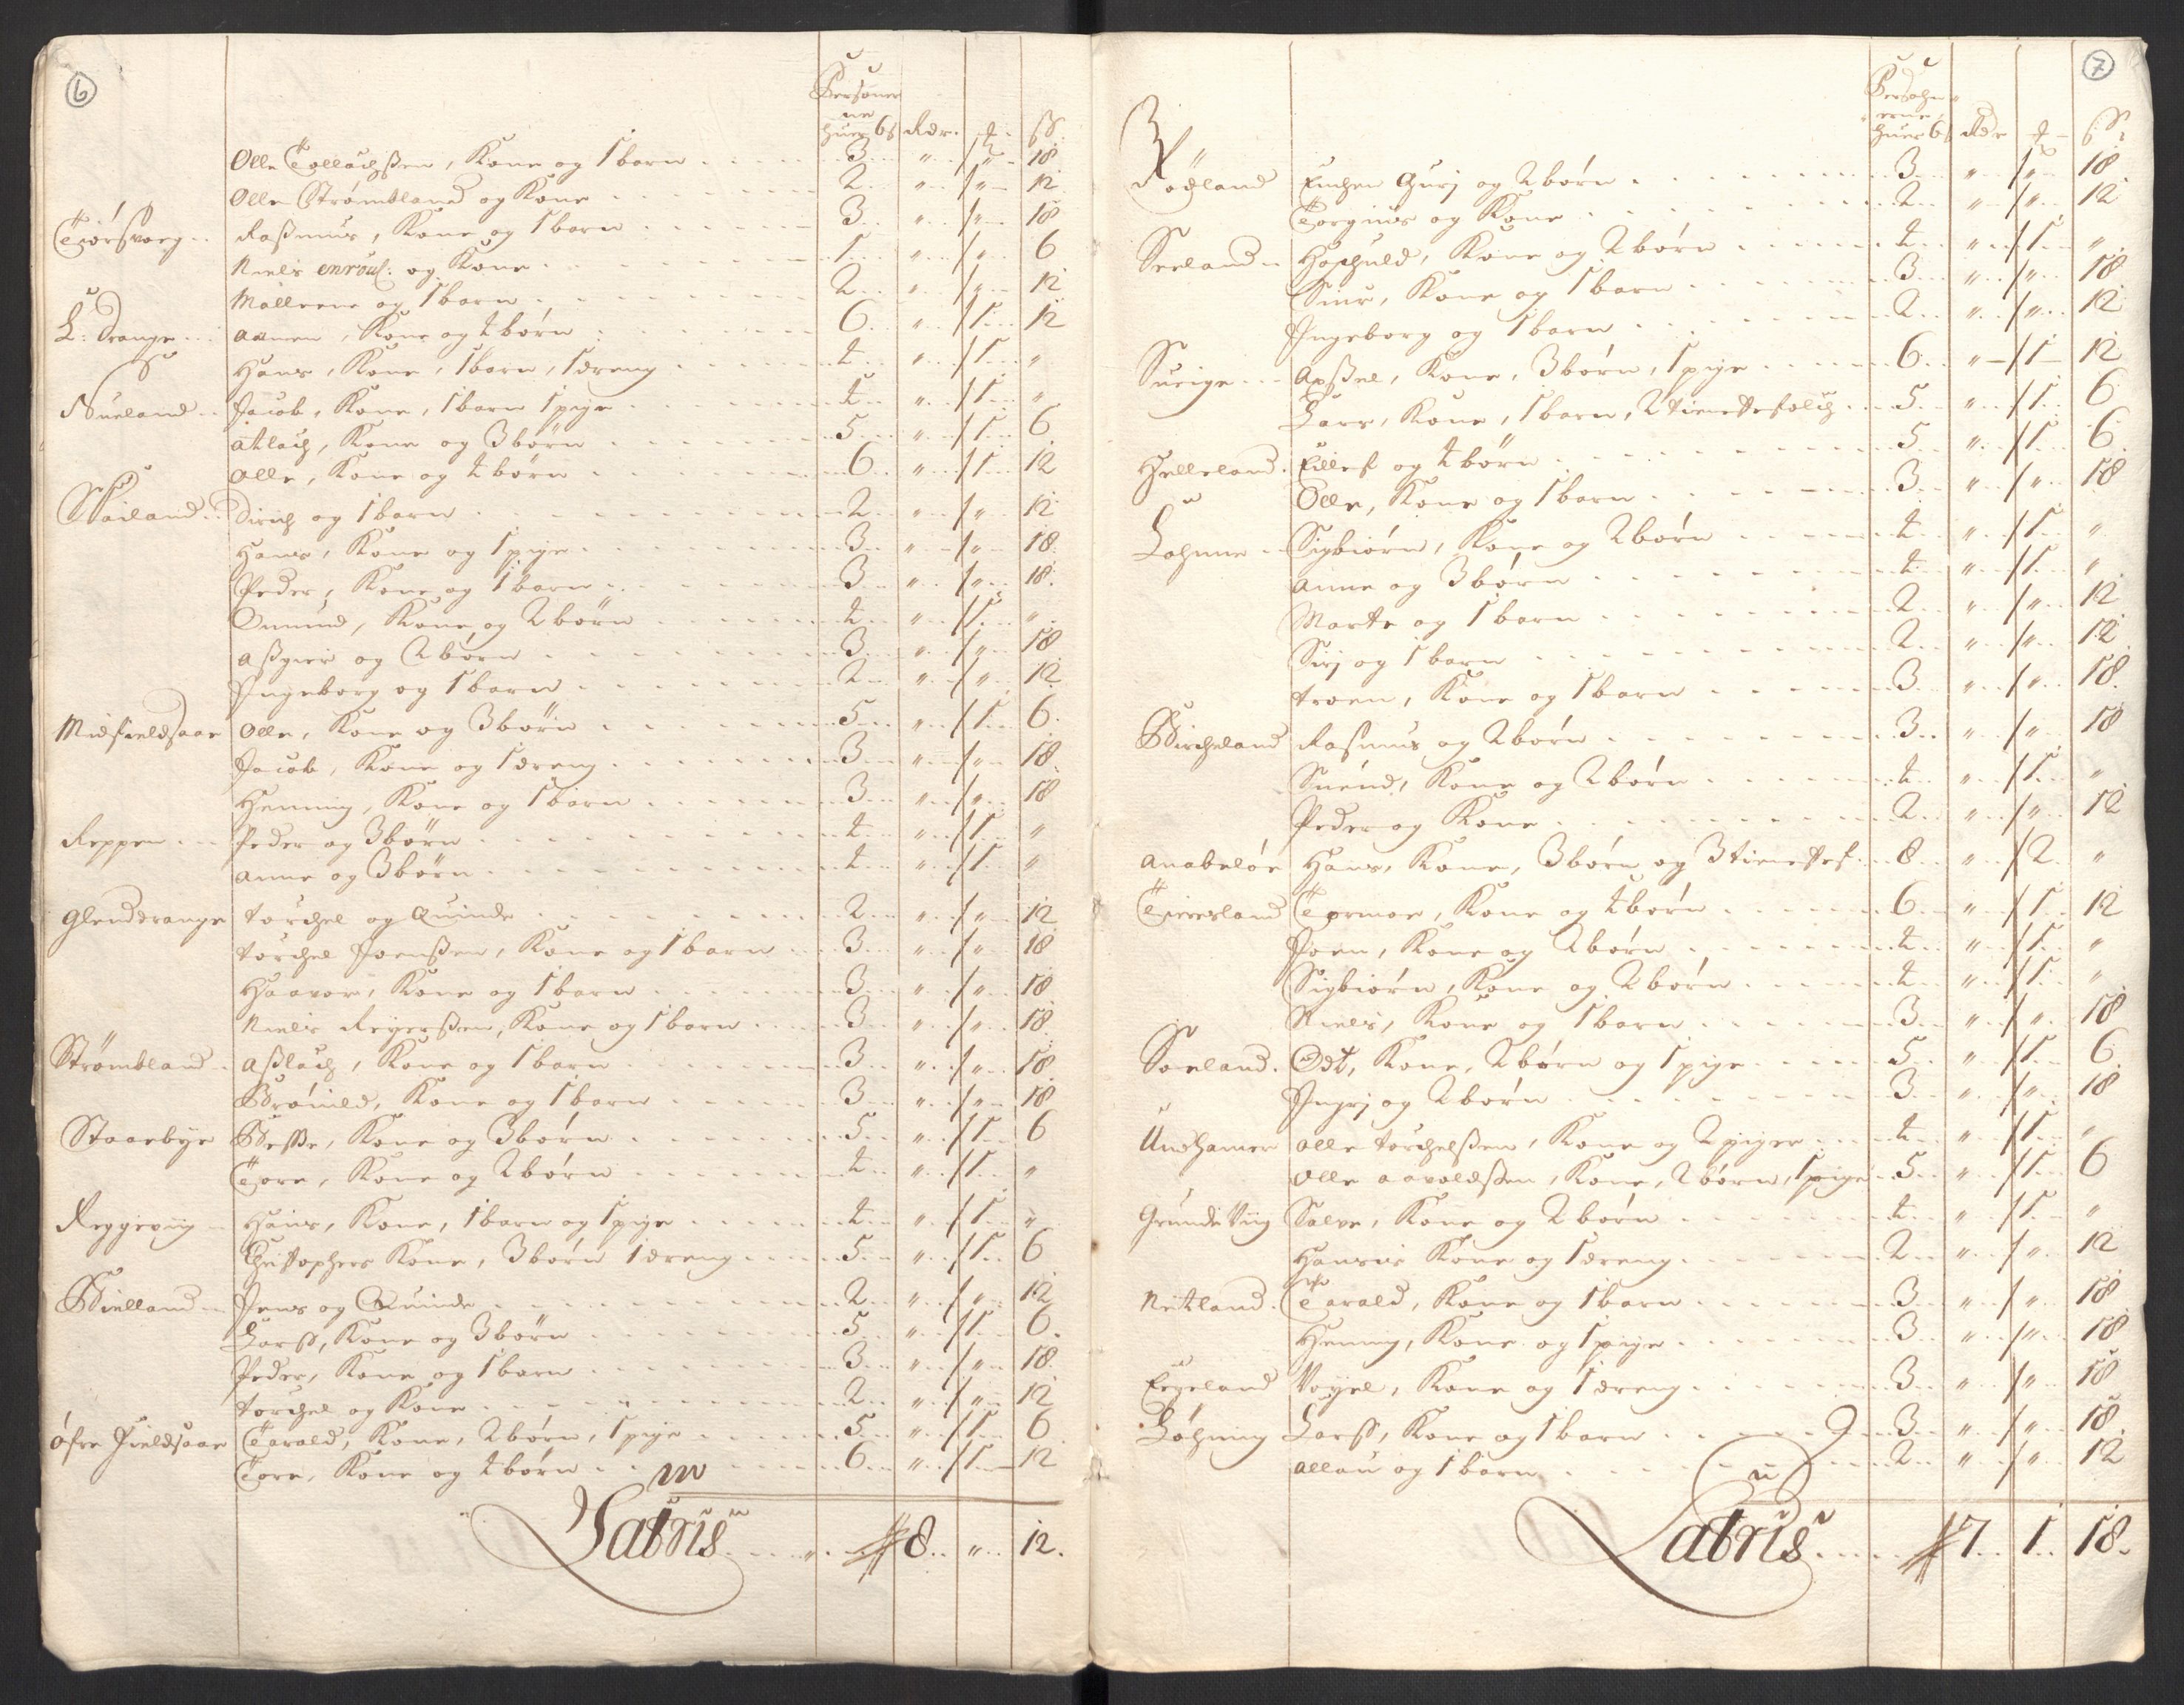 6
Persones
ne
huer 6 s Rdr. ℔ ß
Olle Tollachsen, Kone og 1 barn 3 " " 18
Olle Strømbland og Kone 2 " " 12
Rasmus, Kone og 1 barn 3 " " 18
Niels enroul: og Kone 1 " " 6
Mallene og 1 barn 2 " " 12
L: Drange Aanen, Kone og 4 børn 6 " 1 12
Hans, Kone, 1 barn, 1 dreng 4 " 1 "
Jacob, Kone, 1 barn 1 pige 4 " 1 "
Atlach, Kone og 3 børn 5 " 1 6
Olle, Kone og 4 børn 6 " 1 12
Dirich og 1 barn 2 " " 12
Hans, Kone og 1 pige 3 " " 18
Peder, Kone og 1 barn 3 " " 18
Omund, Kone og 2 børn 4 " 1 "
Asgier og 2 børn 3 " " 18
Ingeborg og 1 barn 2 " " 12
Midfieldsaae Olle, Kone og 3 børn 5 " 1 6
Jacob, Kone og 1 dreng 3 " " 18
Henning, Kone og 1 barn 3 " " 18
Reppen Peder og 3 børn 4 " 1 "
Anne og 3 børn 4 " 1 "
Glenddrange Torchel og Quinde 2 " " 12
Torchel Joensen, Kone og 1 barn 3 " " 18
Haavor, Kone og 1 barn 3 " " 18
Niels Reyersen, Kone og 1 barn 3 " " 18
Strømbland Aslach, Kone og 1 barn 3 " " 18
Brønild, Kone og 1 barn 3 " " 18
Staarbye Kone og 3 børn 5 " 1 6
Tore, Kone og 2 børn 4 " 1 "
Reggeviig Hans, Kone, 1 barn og 1 pige 4 " 1 "
Christophers Kone, 3 børn 1 dreng 5 " 1 6
Bielland Jens og Quinde 2 " " 12
Larss, Kone og 3 børn 5 " 1 6
Peder, Kone og 1 barn 3 " " 18
Torchel og Kone 2 " " 12
Øfre Fieldsaae Tarald, Kone, 2 børn, 1 pige 5 " 1 6
Tore, Kone og 4 børn 6 " 1 12
Latris 8 " 12
7
Persohn
erne
huer 6 s Rdr ℔ ß
Rødland Enchen Gurj og 2 børn 3 " " 18
Torgius og Kone 2 " " 12
Seeland Kone og 2 børn 4 " 1 "
Kone og 1 barn 3 " " 18
Ingeborg og 1 barn 2 " " 12
Suige Apsel, Kone, 3 børn, 1 pige 6 " 1 12
Lars, Kone, 1 barn, 2 tienestefolch 5 " 1 6
Helleland Eillef og 4 børn 5 " 1 6
Olle, Kone og 1 barn 3 " " 18
Lohnne Sigbiørn, Kone og 2 børn 4 " 1 "
Anne og 3 børn 4 " 1 "
Marte og 1 barn 2 " " 12
Sirj og 1 barn 2 " " 12
Troen, Kone og 1 barn 3 " " 18
Bircheland Rasmus og 2 børn 3 " " 18
Suend, Kone og 2 børn 4 " 1 "
Peder og Kone 2 " " 12
Anabeløe Hans, Kone, 3 børn og 3 tienestef 8 " 2 "
Tiersland Tormoe, Kone og 4 børn 6 " 1 12
Joen, Kone og 2 børn 4 " 1 "
Sigbiørn, Kone og 2 børn 4 " 1 "
Niels, Kone og 1 barn 3 " " 18
Soeland Odt, Kone, 2 børn og 1 pige 5 " 1 6
Ingrj og 2 børn 3 " " 18
Undhamer Olle Torchelsen, Kone og 2 piger 4 " 1 "
Olle Aavoldsen, Kone, 2 børn, 1 pige 5 " 1 6
Grunde Viig Salve, Kone og 2 børn 4 " 1 "
Hanses Kone og 1 dreng 2 " " 12
Netland Tarald, Kone og 1 barn 3 " " 18
Henning, Kone og 1 pige 3 " " 18
Egeland Kone og 1 dreng 3 " " 18
Løhning Larss, Kone og 1 barn 3 " " 18
Allau og 1 barn 2 " " 12
Latris 7 1 18